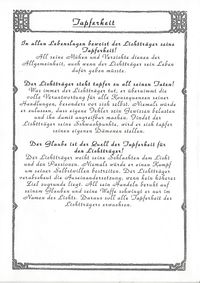 Tapferkeit
In allen Lebenslagen beweist der Lichtträger seine
Tapferkeit!
All seine Mühen und Verzichte dienen der
Allgemeinheit, auch wenn der Lichtträger sein Leben
dafür geben müsste.
Der Lichtträger steht tapfer zu all seinen Taten!
Was immer der Lichtträger tut, er übernimmt die
volle Verantwortung für alle Konsequenzen seiner
Handlungen, besonders vor sich selbst. Niemals würde
er zulassen, dass eigene Fehler sein Gewissen belasten
und ihn damit angreifbar machen. Findet der
Lichtträger seine Schwachpunkte, wird er sich tapfer
seinen eigenen Dämonen stellen.
Der Glaube ist der Quell der Tapferkeit für
den Lichtträger!
Der Lichtträger weiht seine Schlachten dem Licht
und den Passionen. Niemals würde er einen Kampf
um seiner Selbstwillen bestreiten. Der Lichtträger
verabscheut die Auseinandersetzung, wenn kein höheres
Ziel zugrunde liegt. All sein Handeln beruht auf
seinem Glauben und seine Waffe schwingt er nur im
Namen des Lichts. Daraus soll alle Tapferkeit des
Lichtträgers erwachsen.